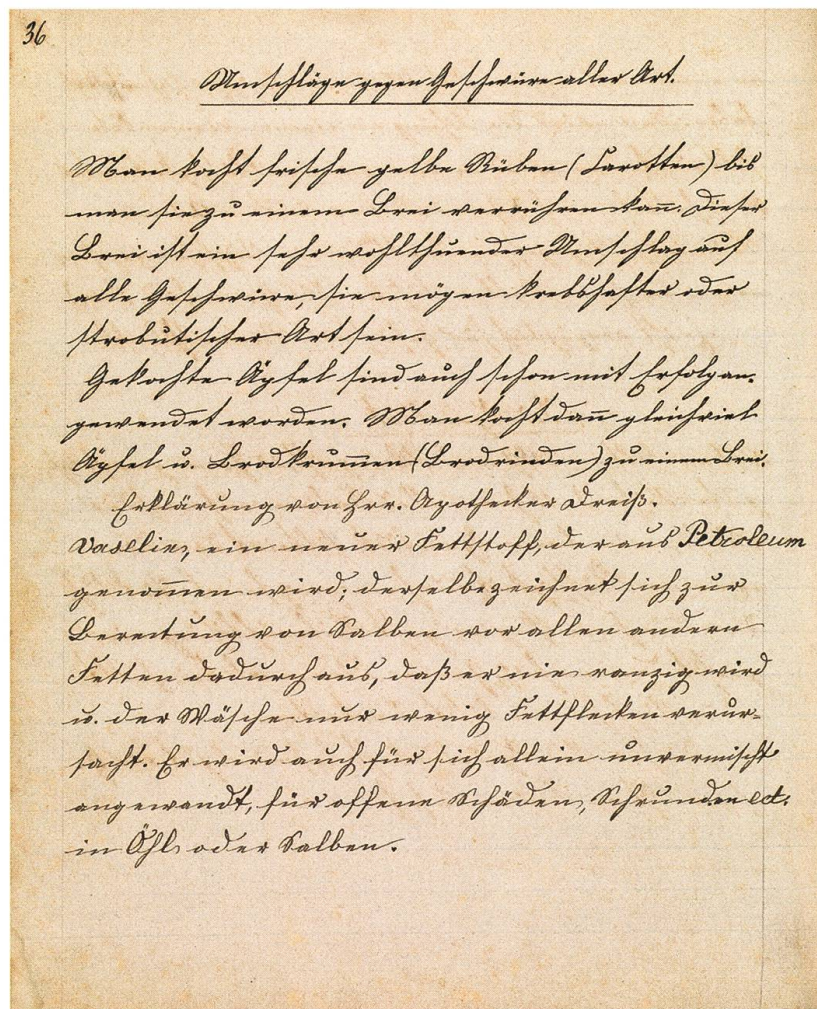 36
Umschläge gegen Geschwüre aller Art.
Man kocht frische gelbe Rüben (Carotten) bis
man sie zu einem Brei verrühren kan̄. Dieser
Brei ist ein sehr wohlthuender Umschlag auf
alle Geschwüre, sie mögen krebshafter oder
skrobutischer Art sein.
Gekochte Äpfel sind auch schon mit Erfolg an-
gewendet worden. Man kocht dan̄ gleichviel
Äpfel u. Brodkrum̄en (Brodrinden) zu einem Brei.
Erklärung von Hrr. Apothecker Dreiß.
Vaselin, ein neuer Fettstoff, der aus Petroleum
genom̄en wird; derselbe zeichnet sich zur
Bereitung von Salben vor allen andern
Fetten dadurch aus, daß er nie ranzig wird
u. der Wäsche nur wenig Fettflecken verur-
sacht. Er wird auch für sich allein unvermischt
angewandt, für offene Schäden, Schrunden ect.
in Öhl oder Salben.